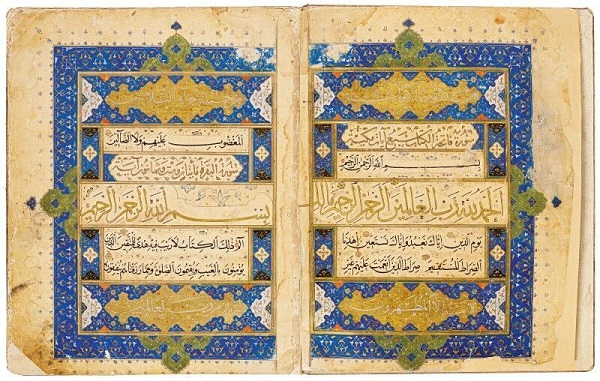 سورة فاتحة الكتاب سبع آيات مكية
بسم الله الرحمن الرحيم
الحمد لله رب العالمين الرحمن الرحيم مالك
يوم الدين إياك نعبد وإياك نستعين اهدنا
الصراط المستقيم صراط الذين أنعمت عليهم غير
إلا المطهرون
المغضوب عليهم ولا الضالين
سورة البقرة
بسم الله الرحمن الرحيم
الم ذلك الكتاب لا ريب فيه هدى للمتقين الذين
يؤمنون بالغيب ويقيمون الصلوة ومما رزقناهم ينفقون